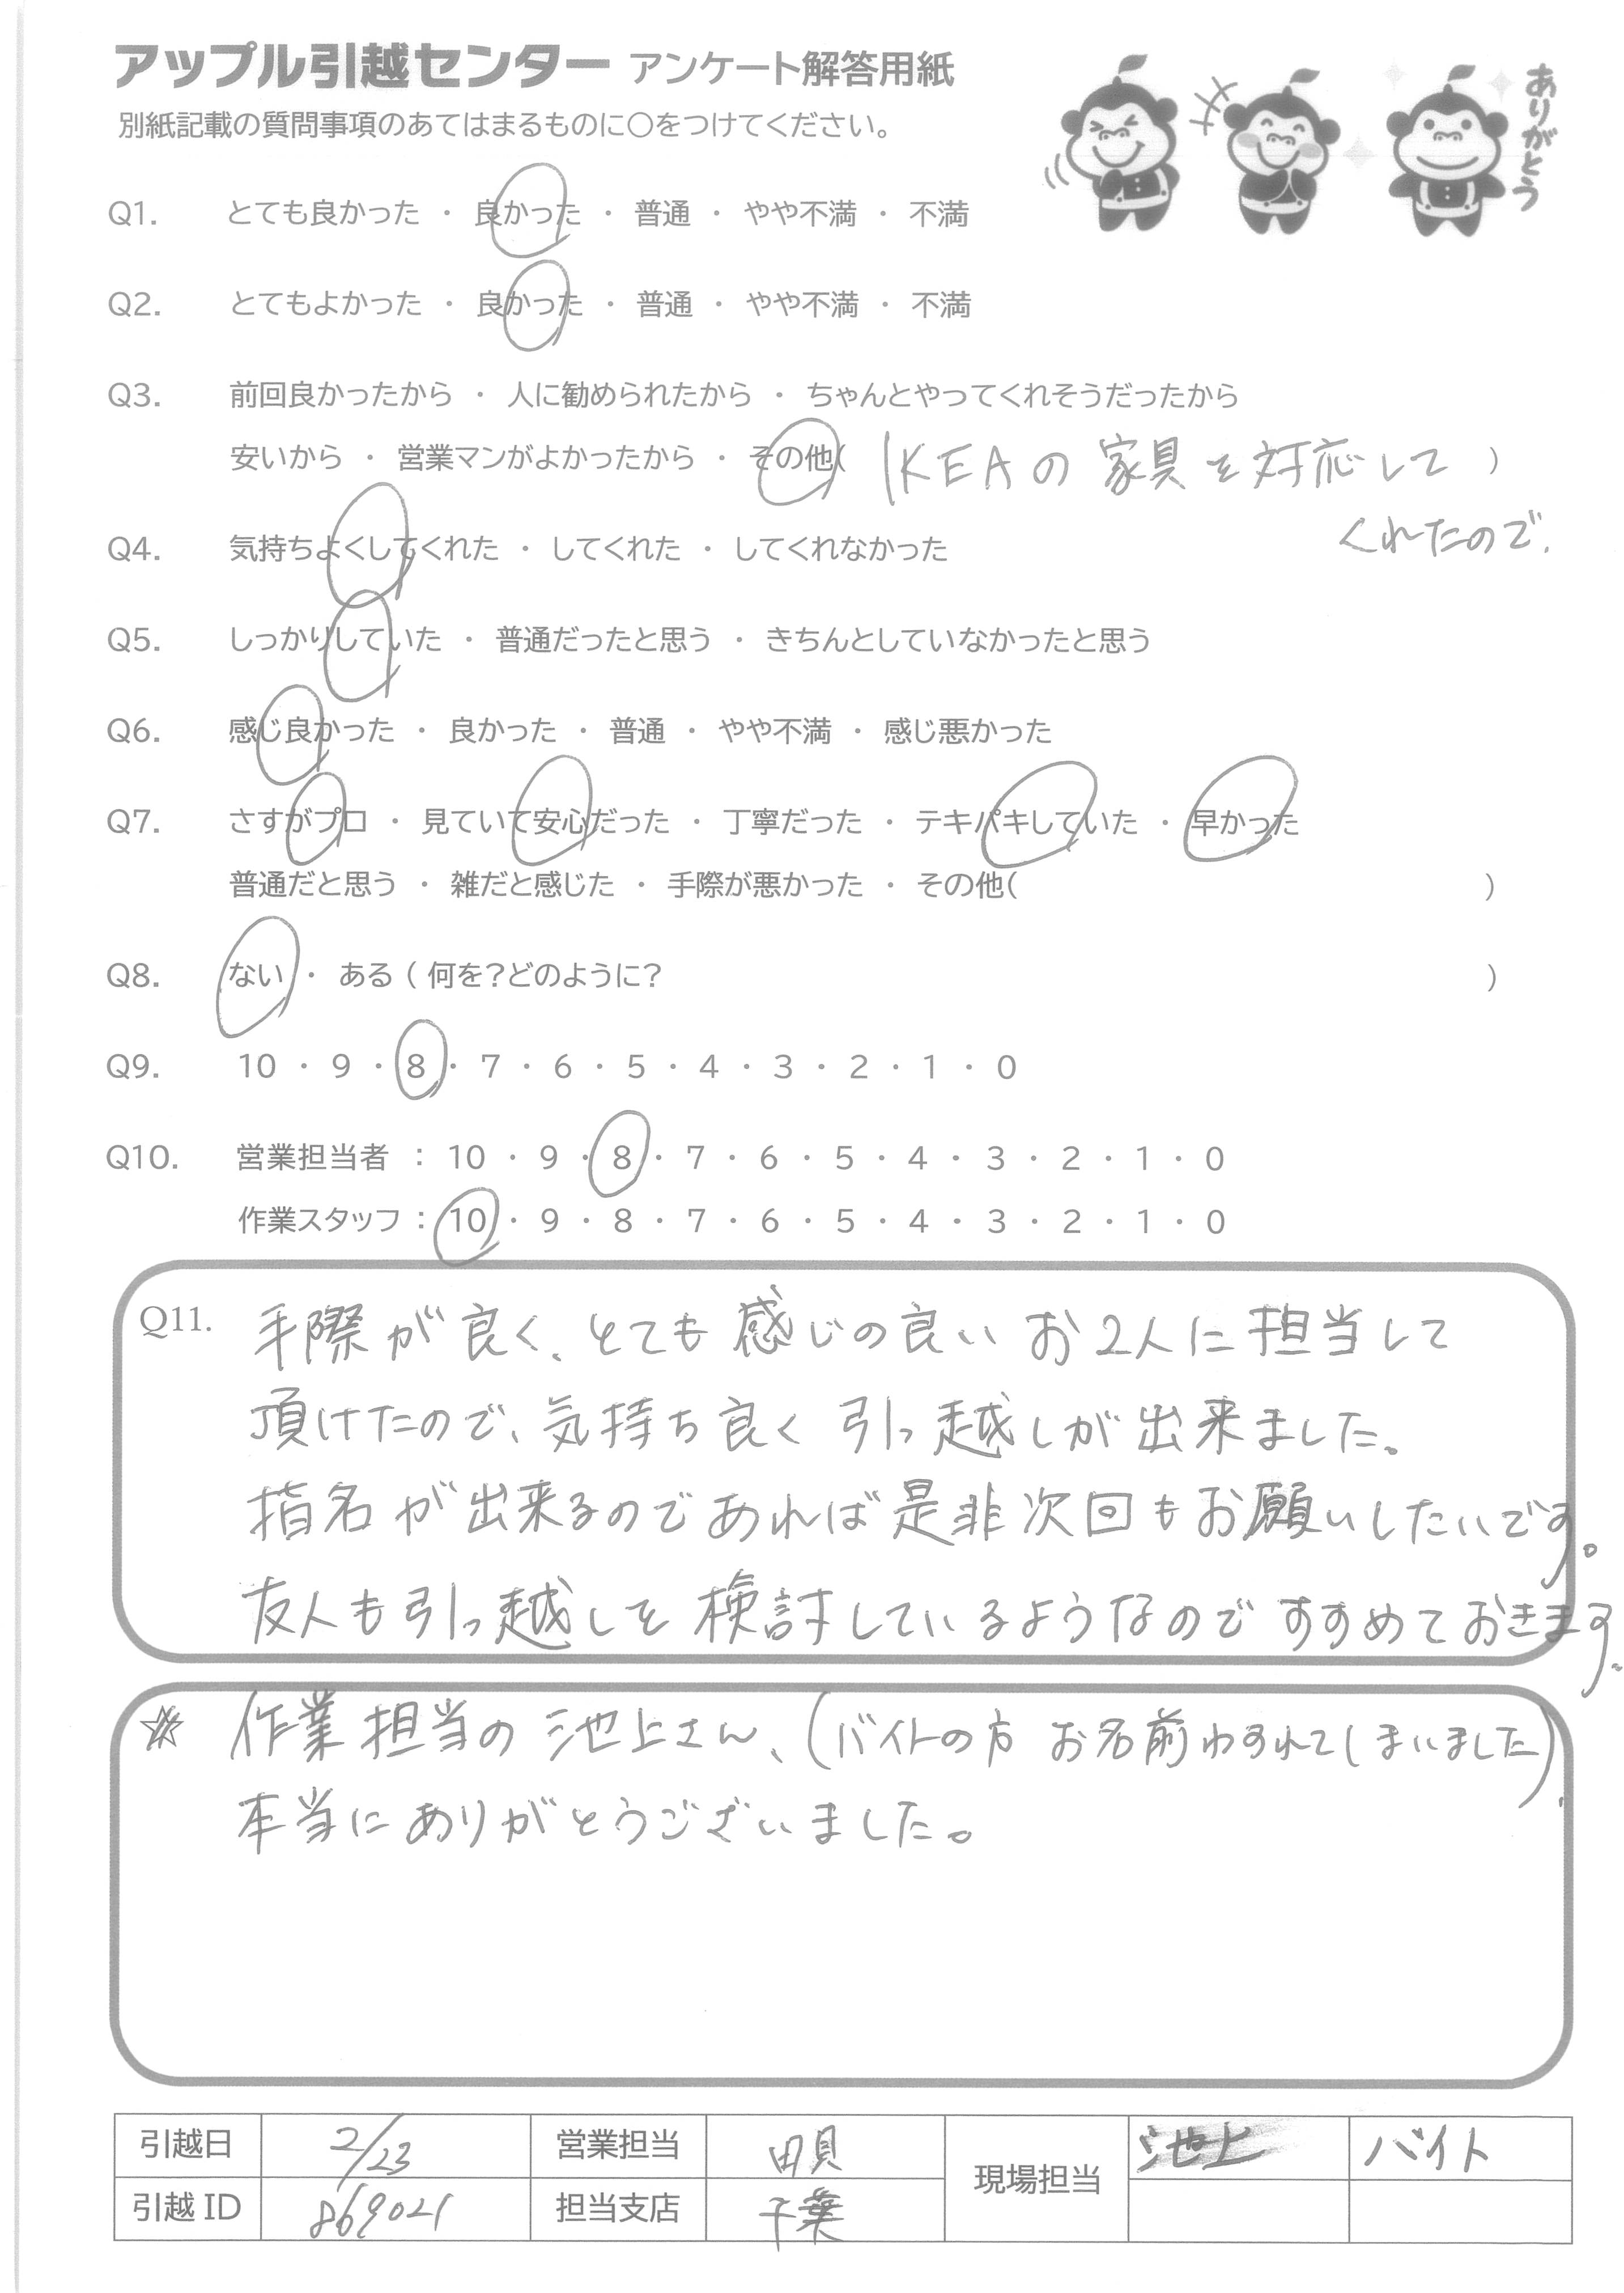 アップル引越センター アンケート解答用紙
ありがとう
別紙記載の質問事項のあてはまるものに○をつけてください。
Q1. とても良かった ・ 良かった ・ 普通 ・ やや不満 ・ 不満
Q2. とてもよかった ・ 良かった ・ 普通 ・ やや不満 ・ 不満
Q3. 前回良かったから ・ 人に勧められたから ・ ちゃんとやってくれそうだったから
安いから ・ 営業マンがよかったから ・ その他( IKEAの家具を対応して )
くれたので.
Q4. 気持ちよくしてくれた ・ してくれた ・ してくれなかった
Q5. しっかりしていた ・ 普通だったと思う ・ きちんとしていなかったと思う
Q6. 感じ良かった ・ 良かった ・ 普通 ・ やや不満 ・ 感じ悪かった
Q7. さすがプロ ・ 見ていて安心だった ・ 丁寧だった ・ テキパキしていた ・ 早かった
普通だと思う ・ 雑だと感じた ・ 手際が悪かった ・ その他( )
Q8. ない ・ ある ( 何を?どのように? )
Q9. 10 ・ 9 ・ 8 ・ 7 ・ 6 ・ 5 ・ 4 ・ 3 ・ 2 ・ 1 ・ 0
Q10. 営業担当者 : 10 ・ 9 ・ 8 ・ 7 ・ 6 ・ 5 ・ 4 ・ 3 ・ 2 ・ 1 ・ 0
作業スタッフ : 10 ・ 9 ・ 8 ・ 7 ・ 6 ・ 5 ・ 4 ・ 3 ・ 2 ・ 1 ・ 0
Q11. 手際が良く、とても感じの良いお2人に担当して
頂けたので、気持ち良く引っ越しが出来ました。
指名が出来るのであれば是非次回もお願いしたいです。
友人も引っ越しを検討しているようなのですすめておきます.
☆ 作業担当の池上さん、(バイトの方 お名前わすれてしまいました).
本当にありがとうございました。
引越日 2/23 営業担当 現場担当 池上 バイト
引越ID 869021 担当支店 千葉